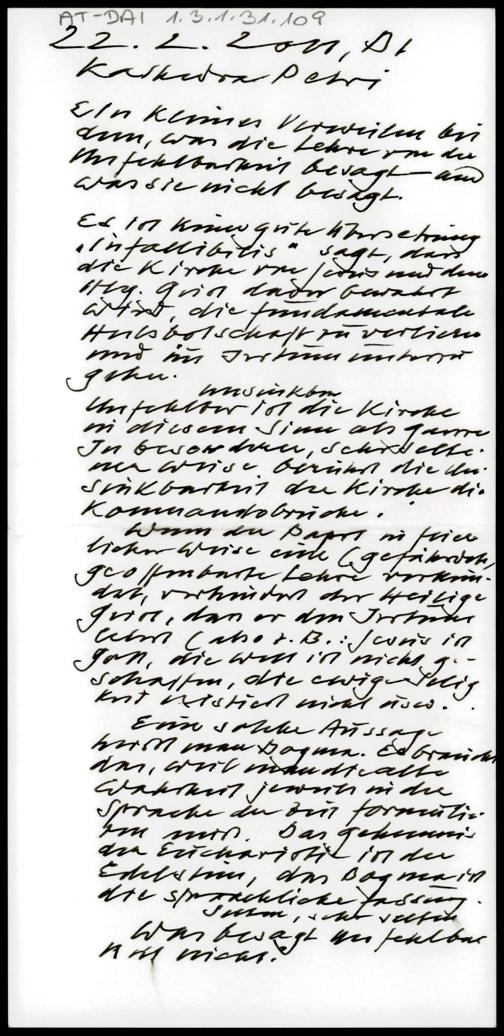 AT-DAI 1.3.1.31.109
22. 2. 2011, Bi
Kathedra Petri
Ein kleines Verweilen bei
dem, was die Lehre von der
Unfehlbarkeit besagt und
was sie nicht besagt.
Es ist keine gute Übersetzung
"infallibilis" sagt, dass
die Kirche von Jesus und dem
Hlg. Geist davor bewahrt
wird, die fundamentale
Heilsbotschaft zu verlieren
und im Irrtum unterzu
gehen.
unsinkbar
Unfehlbar ist die Kirche
in diesem Sinne als ganze
In besonderer, seltene
ner Weise, berührt die Un
sinkbarkeit der Kirche die
Kommandobrücke.
Wenn der Papst in feier
licher Weise eine (gefährdete,
geoffenbarte Lehre verkün-
det, verhindert der Heilige
Geist, dass er den Irrtum
lehrt (also z. B.: Jesus ist
Gott, die Welt ist nicht ge-
schaffen, die ewige Selig
keit existiert nicht usw.
Eine solche Aussage
heisst man Dogma. Es braucht
das, weil man die alte
Wahrheit jeweils in die
Sprache der Zeit formulie
ren muss. Das Geheimnis
der Eucharistie ist der
Edelstein, das Dogma ist
die sprachliche Fassung.
Selten, sehr selten
Was besagt Unfehlbar
keit nicht?